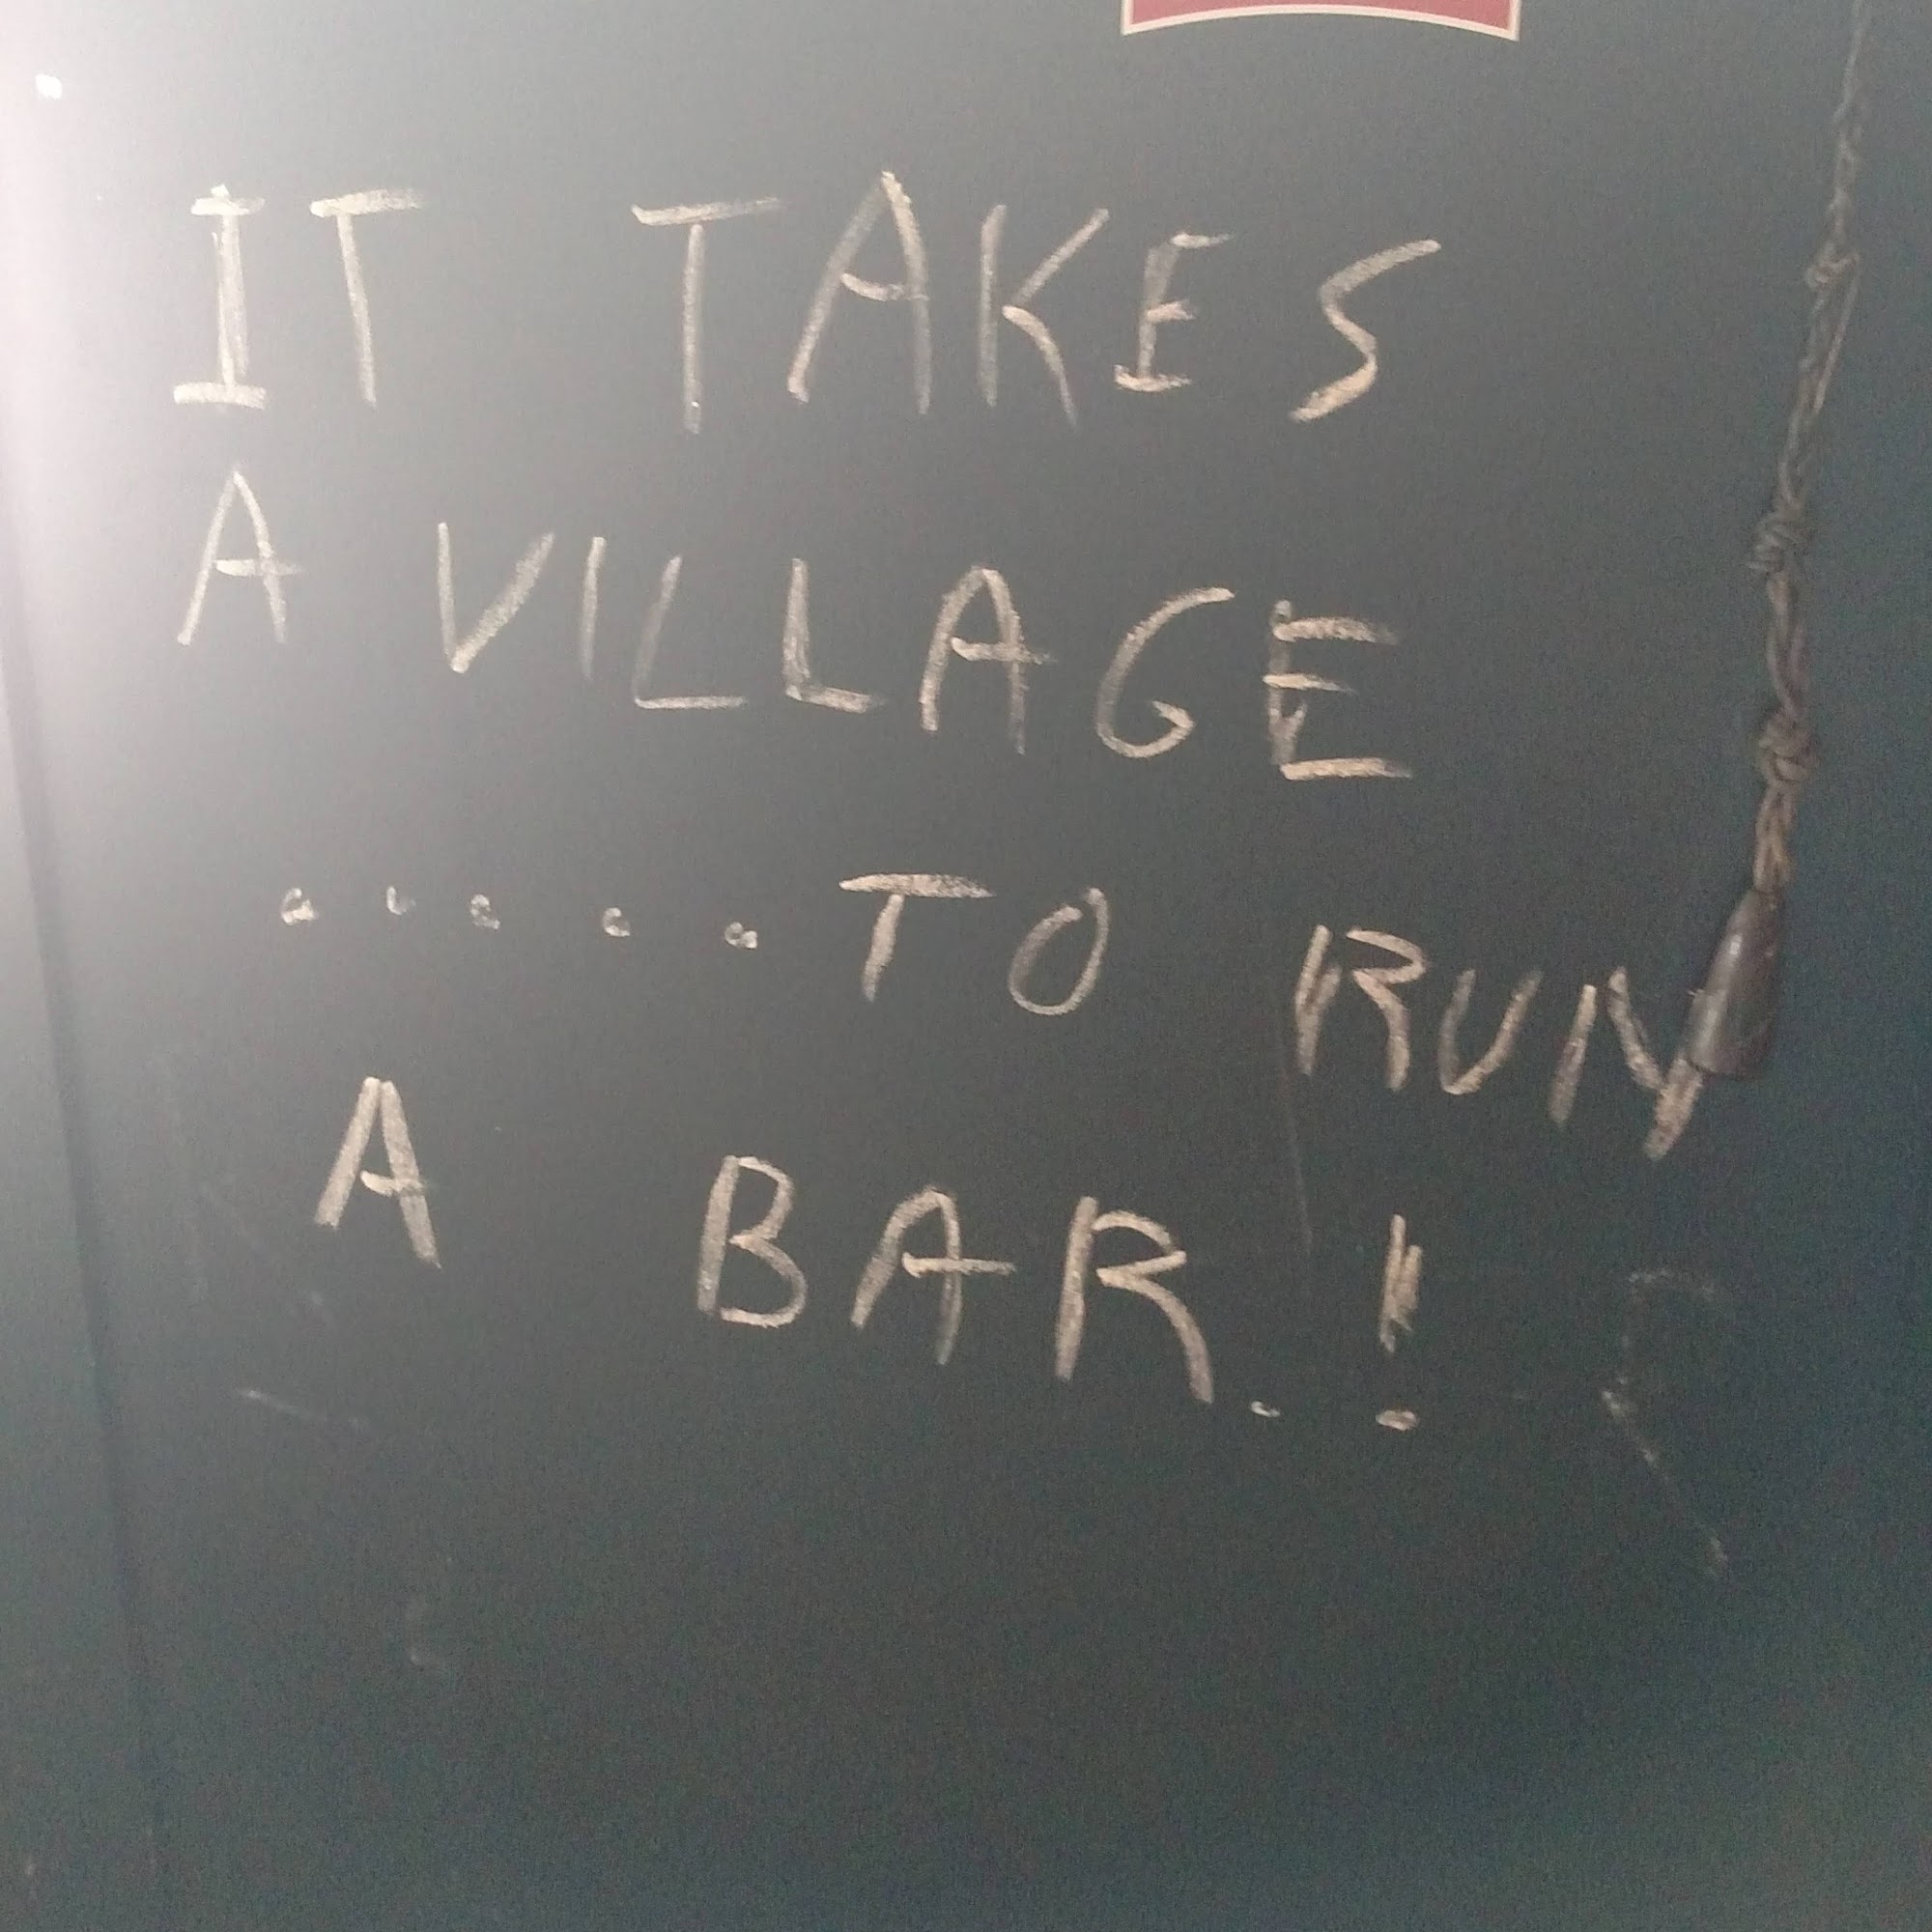 IT TAKES
A VILLAGE
.....TO RUN
A BAR.!